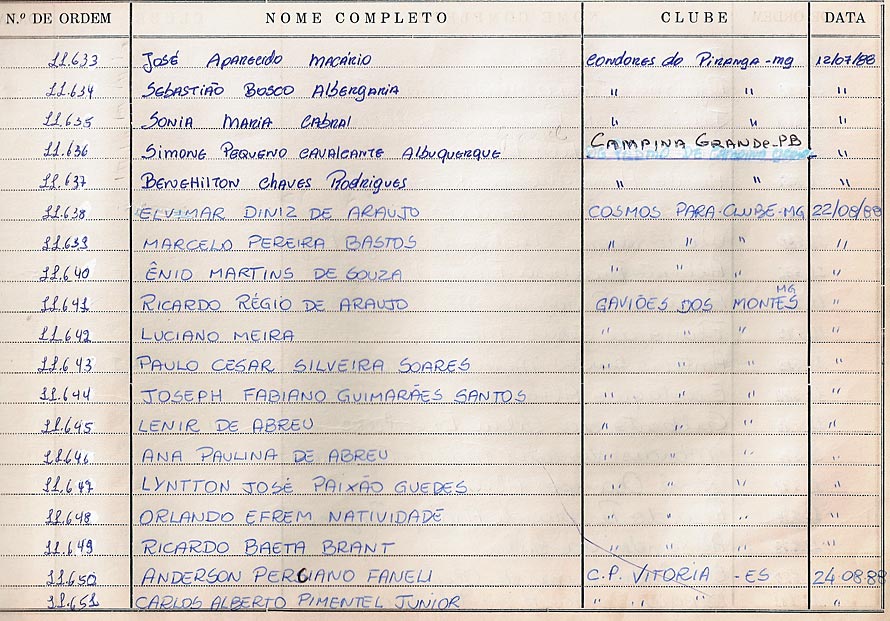 N.º DE ORDEM NOME COMPLETO CLUBE DATA
11.633 José Aparecido Macário Condores do Piranga-mg 12/07/88
11.634 Sebastião Bosco Albergaria " " "
11.635 Sonia Maria Cabral " " "
11.636 Simone Pequeno Cavalcante Albuquerque CAMPINA GRANDE-PB "
11.637 Benehilton Chaves Rodrigues " " "
11.638 ELVIMAR DINIZ DE ARAUJO COSMOS PARA-CLUBE-MG 22/08/88
11.639 MARCELO PEREIRA BASTOS " " " "
11.640 ÊNIO MARTINS DE SOUZA " " " "
11.641 RICARDO RÉGIO DE ARAUJO GAVIÕES DOS MONTES MG "
11.642 LUCIANO MEIRA " " " "
11.643 PAULO CESAR SILVEIRA SOARES " " " "
11.644 JOSEPH FABIANO GUIMARÃES SANTOS " " " "
11.645 LENIR DE ABREU " " " "
11.646 ANA PAULINA DE ABREU " " " "
11.647 LYNTTON JOSÉ PAIXÃO GUEDES " " " "
11.648 ORLANDO EFREM NATIVIDADE " " " "
11.649 RICARDO BAETA BRANT " " " "
11.650 ANDERSON PERCIANO FANELI C.P. VITORIA - ES 24.08.88
11.651 CARLOS ALBERTO PIMENTEL JUNIOR " " " "